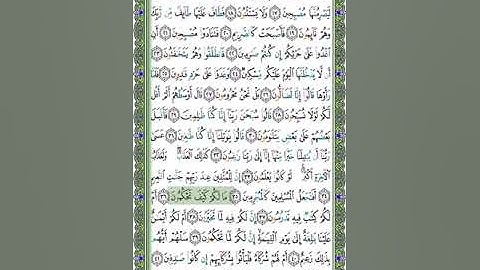 لَيَصْرِمُنَّهَا مُصْبِحِينَ ١٧ وَلَا يَسْتَثْنُونَ ١٨ فَطَافَ عَلَيْهَا طَآئِفٌ مِّن رَّبِّكَ
وَهُمْ نَآئِمُونَ ١٩ فَأَصْبَحَتْ كَٱلصَّرِيمِ ٢٠ فَتَنَادَوْا۟ مُصْبِحِينَ ٢١ أَنِ
ٱغْدُوا۟ عَلَىٰ حَرْثِكُمْ إِن كُنتُمْ صَٰرِمِينَ ٢٢ فَٱنطَلَقُوا۟ وَهُمْ يَتَخَٰفَتُونَ ٢٣
أَن لَّا يَدْخُلَنَّهَا ٱلْيَوْمَ عَلَيْكُم مِّسْكِينٌ ٢٤ وَغَدَوْا۟ عَلَىٰ حَرْدٍ قَٰدِرِينَ ٢٥ فَلَمَّا
رَأَوْهَا قَالُوٓا۟ إِنَّا لَضَآلُّونَ ٢٦ بَلْ نَحْنُ مَحْرُومُونَ ٢٧ قَالَ أَوْسَطُهُمْ أَلَمْ أَقُل
لَّكُمْ لَوْلَا تُسَبِّحُونَ ٢٨ قَالُوا۟ سُبْحَٰنَ رَبِّنَآ إِنَّا كُنَّا ظَٰلِمِينَ ٢٩ فَأَقْبَلَ
بَعْضُهُمْ عَلَىٰ بَعْضٍ يَتَلَٰوَمُونَ ٣٠ قَالُوا۟ يَٰوَيْلَنَآ إِنَّا كُنَّا طَٰغِينَ ٣١ عَسَىٰ
رَبُّنَآ أَن يُبْدِلَنَا خَيْرًا مِّنْهَآ إِنَّآ إِلَىٰ رَبِّنَا رَٰغِبُونَ ٣٢ كَذَٰلِكَ ٱلْعَذَابُ وَلَعَذَابُ
ٱلْءَاخِرَةِ أَكْبَرُ لَوْ كَانُوا۟ يَعْلَمُونَ ٣٣ إِنَّ لِلْمُتَّقِينَ عِندَ رَبِّهِمْ جَنَّٰتِ ٱلنَّعِيمِ
٣٤ أَفَنَجْعَلُ ٱلْمُسْلِمِينَ كَٱلْمُجْرِمِينَ ٣٥ مَا لَكُمْ كَيْفَ تَحْكُمُونَ ٣٦ أَمْ
لَكُمْ كِتَٰبٌ فِيهِ تَدْرُسُونَ ٣٧ إِنَّ لَكُمْ فِيهِ لَمَا تَخَيَّرُونَ ٣٨ أَمْ لَكُمْ أَيْمَٰنٌ
عَلَيْنَا بَٰلِغَةٌ إِلَىٰ يَوْمِ ٱلْقِيَٰمَةِ إِنَّ لَكُمْ لَمَا تَحْكُمُونَ ٣٩ سَلْهُمْ أَيُّهُم
بِذَٰلِكَ زَعِيمٌ ٤٠ أَمْ لَهُمْ شُرَكَآءُ فَلْيَأْتُوا۟ بِشُرَكَآئِهِمْ إِن كَانُوا۟ صَٰدِقِينَ ٤١